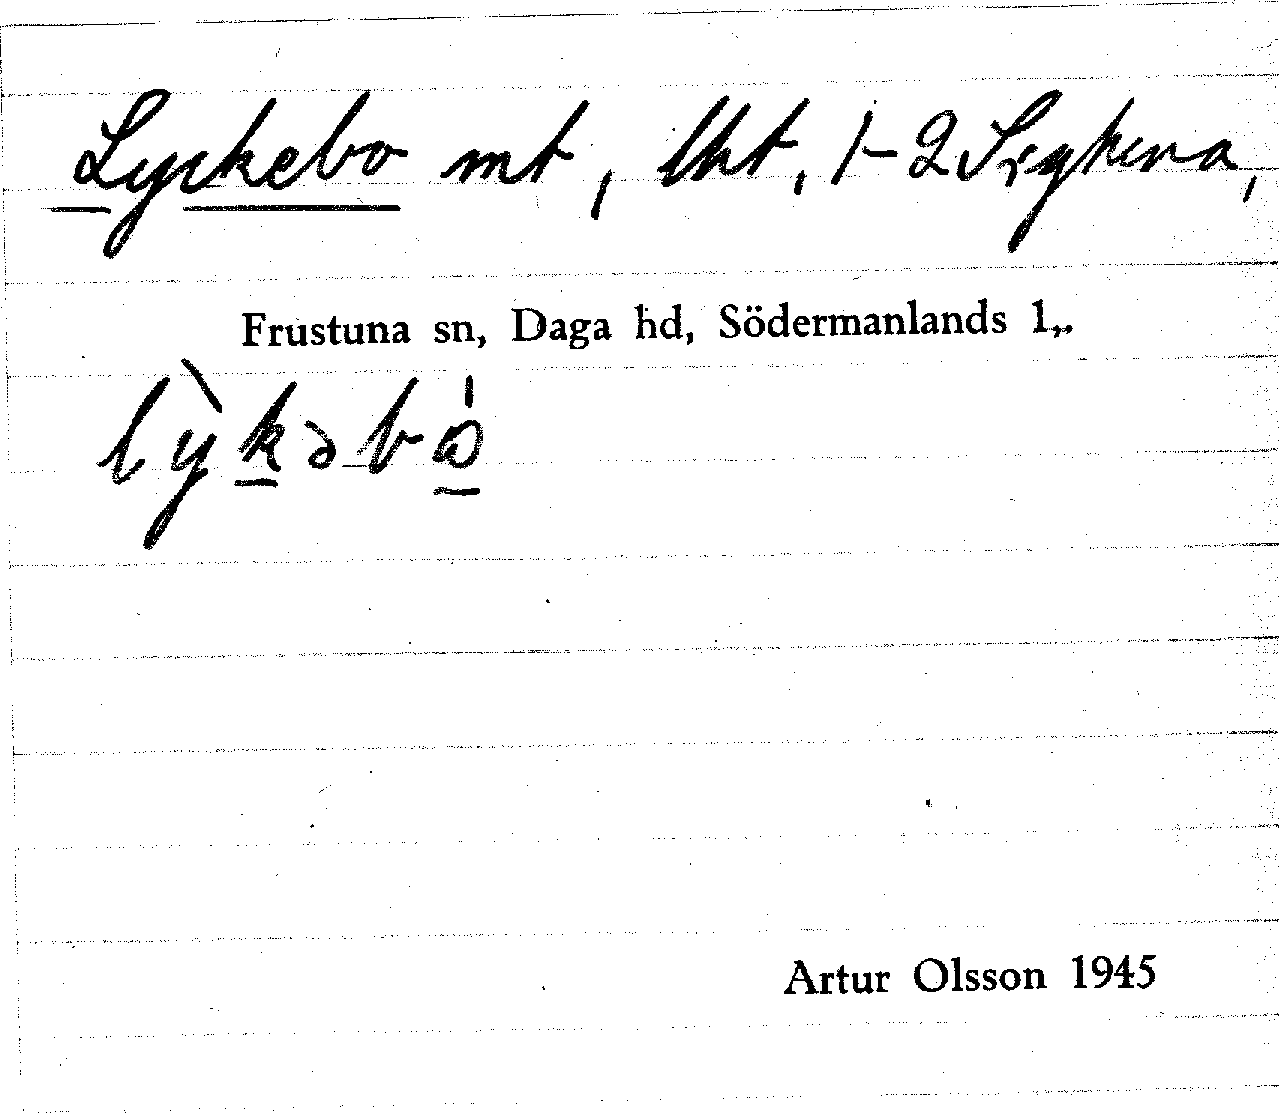 Lyckebo mt, lht, 1-2 Srykena,
Frustuna sn, Daga hd, Södermanlands l.
lỳkəbó̱
Artur Olsson 1945